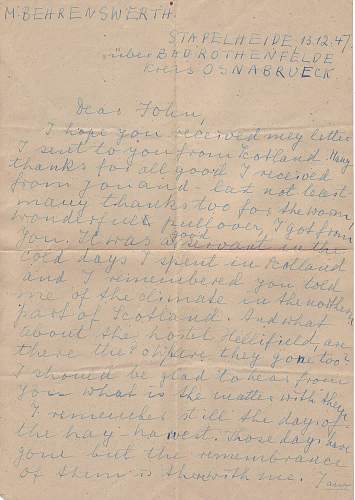 M. BEHRENSWERTH.
STAPELHEIDE, 13.12.47.
über BAD ROTHENFELDE
Kreis OSNABRUECK
Dear John,
I hope you received mey letter
I sent to you from Scotland. Many
thanks for all good I received
from you and - last not least
many thanks too for the warm,
wonderfull pullover, I got from
you. It was a good servant in the
cold days I spent in Scotland
and I remembered you told
me of the climate in the northern
part of Scotland. And what
about the hostel Hellifield, are
there the chaps are they gone too?
I should be glad to hear from
you what is the matter with they.
I remember still the days of
the hay-harvest. Those days are
gone but the remembrance
of them is with me. I am